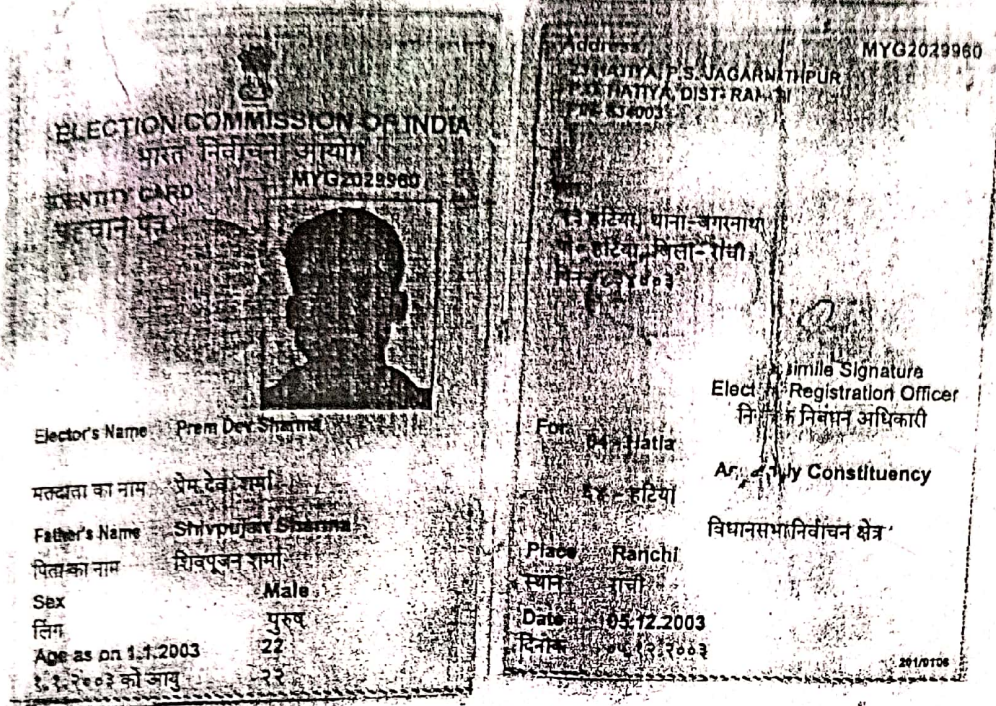 ELECTION COMMISSION OF INDIA
भारत निर्वाचन आयोग
IDENTITY CARD MYG2029960
पहचान पत्र
Elector's Name Prem Dev Sharma
मतदाता का नाम प्रेम देव शर्मा
Father's Name Shivpujan Sharma
पिता का नाम शिवपूजन शर्मा
Sex Male
लिंग पुरुष
Age as on 1.1.2003 22
१.१.२००३ को आयु २२
MYG2029960
Address
HATIYA, P.S. JAGARNATHPUR
HATIYA, DIST-
हटिया, थाना-जगरनाथ
हटिया, जिला-रांची
Signature
Registration Officer
निबंधन अधिकारी
For Hatia
Constituency
हटिया
विधानसभा निर्वाचन क्षेत्र
Place Ranchi
स्थान रांची
Date 05.12.2003
दिनांक ०५.१२.२००३